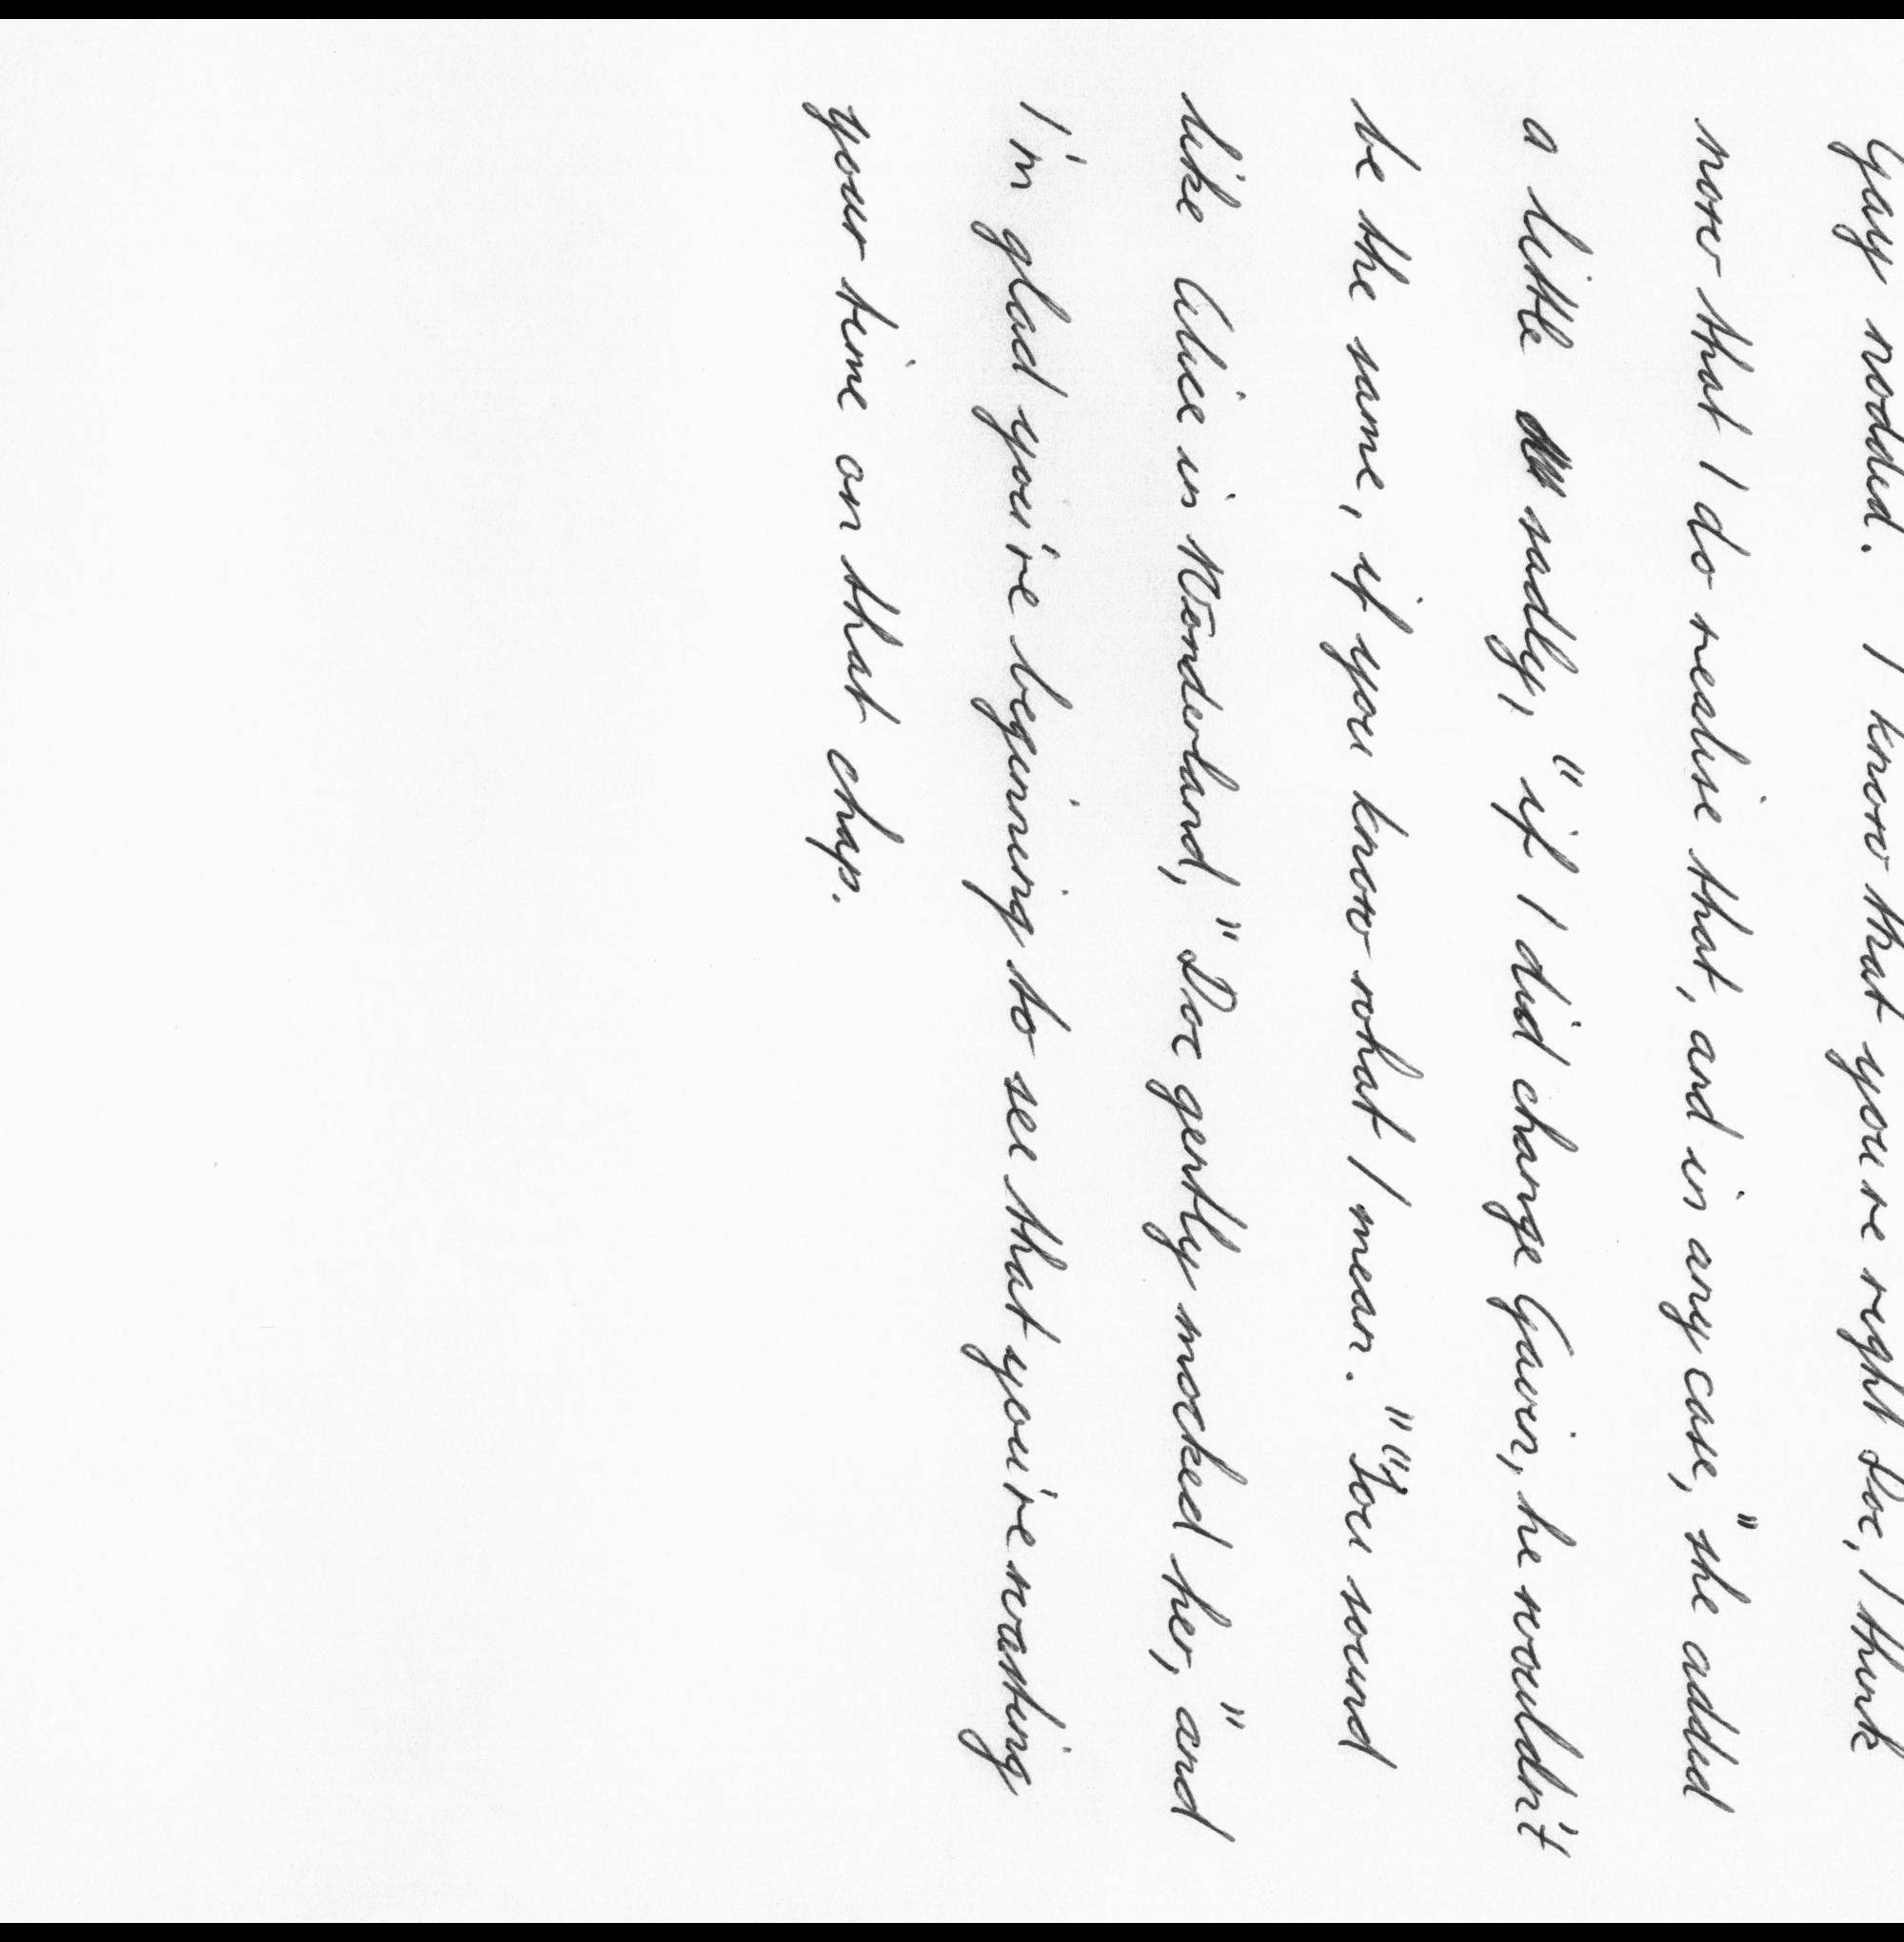 Gay nodded. I know that you're right Doc, I think
now that I do realise that, and in any case," she added
a little sadly, "if I did change Gavin, he wouldn't
be the same, if you know what I mean." "You sound
like Alice in Wonderland," Doc gently mocked her, "and
I'm glad you're beginning to see that you're wasting
your time on that chap.